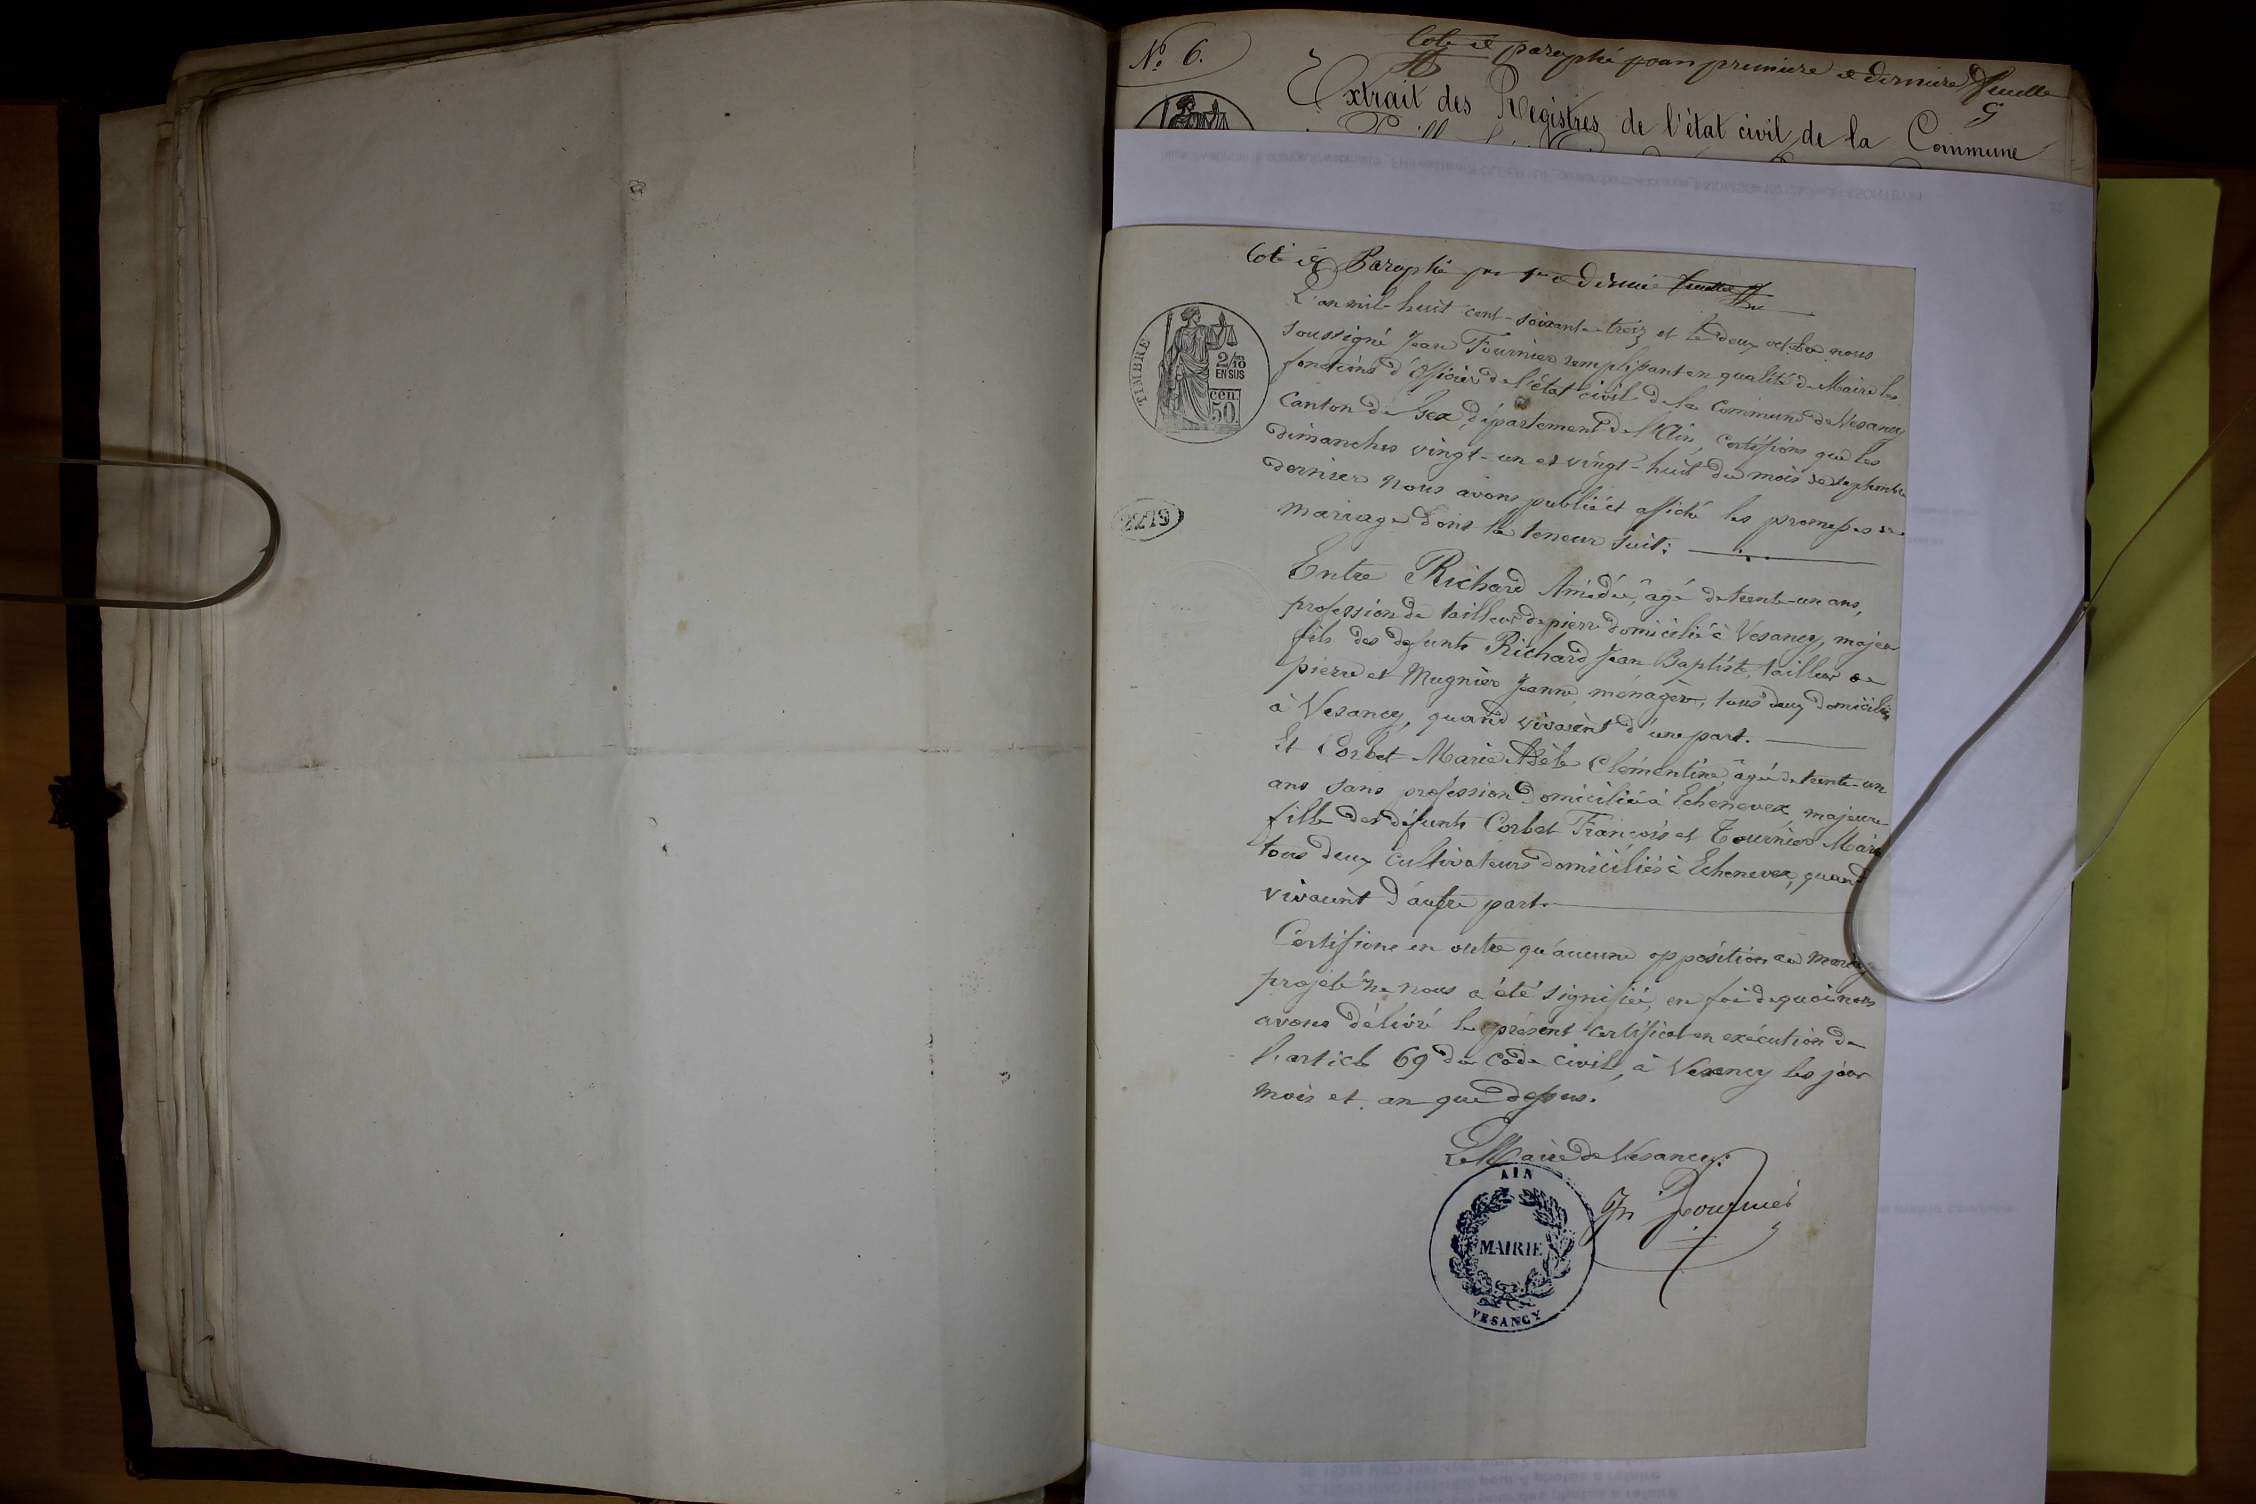 Nº 6.
Coté et paraphé pour premiere et derniere feuille
Extrait des Registres de l'état civil de la Commune
Coté et Paraphé par 1re et derniere feuille
L'an mil-huit cent-soixante-treiz et le deux octobre nous
soussigné Jean Fournier remplissant en qualité de Maire les
fonctions d'officier de l'état civil de la commune de Vesancy
Canton de Gex, département de l'Ain, certifions que les
dimanches vingt-un et vingt-huit du mois de septembre
dernier nous avons publié et affiché les promesses de
mariage dont la teneur suit:
TIMBRE
2/10
EN SUS
cen.
50.
2279
Entre Richard Amédée, âgé de trente-un ans,
profession de tailleur de pierre domicilié à Vesancy, majeur
fils des defunts Richard Jean Baptiste, tailleur de
pierre et Mugnier Jeanne ménagère, tous deux domiciliés
à Vesancy, quand vivaient d'une part.
Et Corbet Marie Adèle Clémentine âgée de trente-un
ans sans profession domiciliée à Echenevex, majeure
fille des défunts Corbet François et Tournier Marie
tous deux cultivateurs domiciliés à Echenevex, quand
vivaient d'autre part.
Certifions en outre qu'aucune opposition au mariage
projeté ne nous a été signifiée, en foi de quoi nous
avons délivré le présent certificat en exécution de
l'article 69 du code civil, à Vesancy les jour
mois et an que dessus.
Le Maire de Vesancy:
Jn Fournier
AIN
MAIRIE
VESANCY